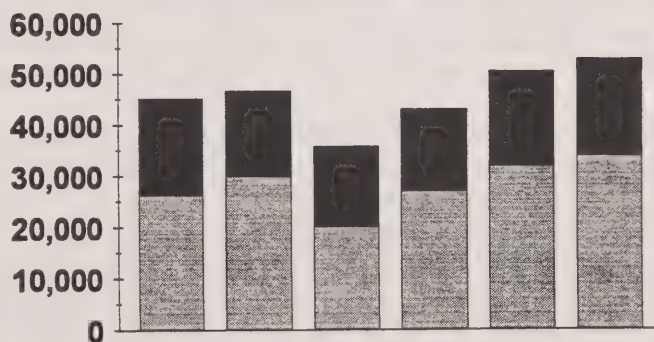 60,000
50,000
40,000
30,000
20,000
10,000
0